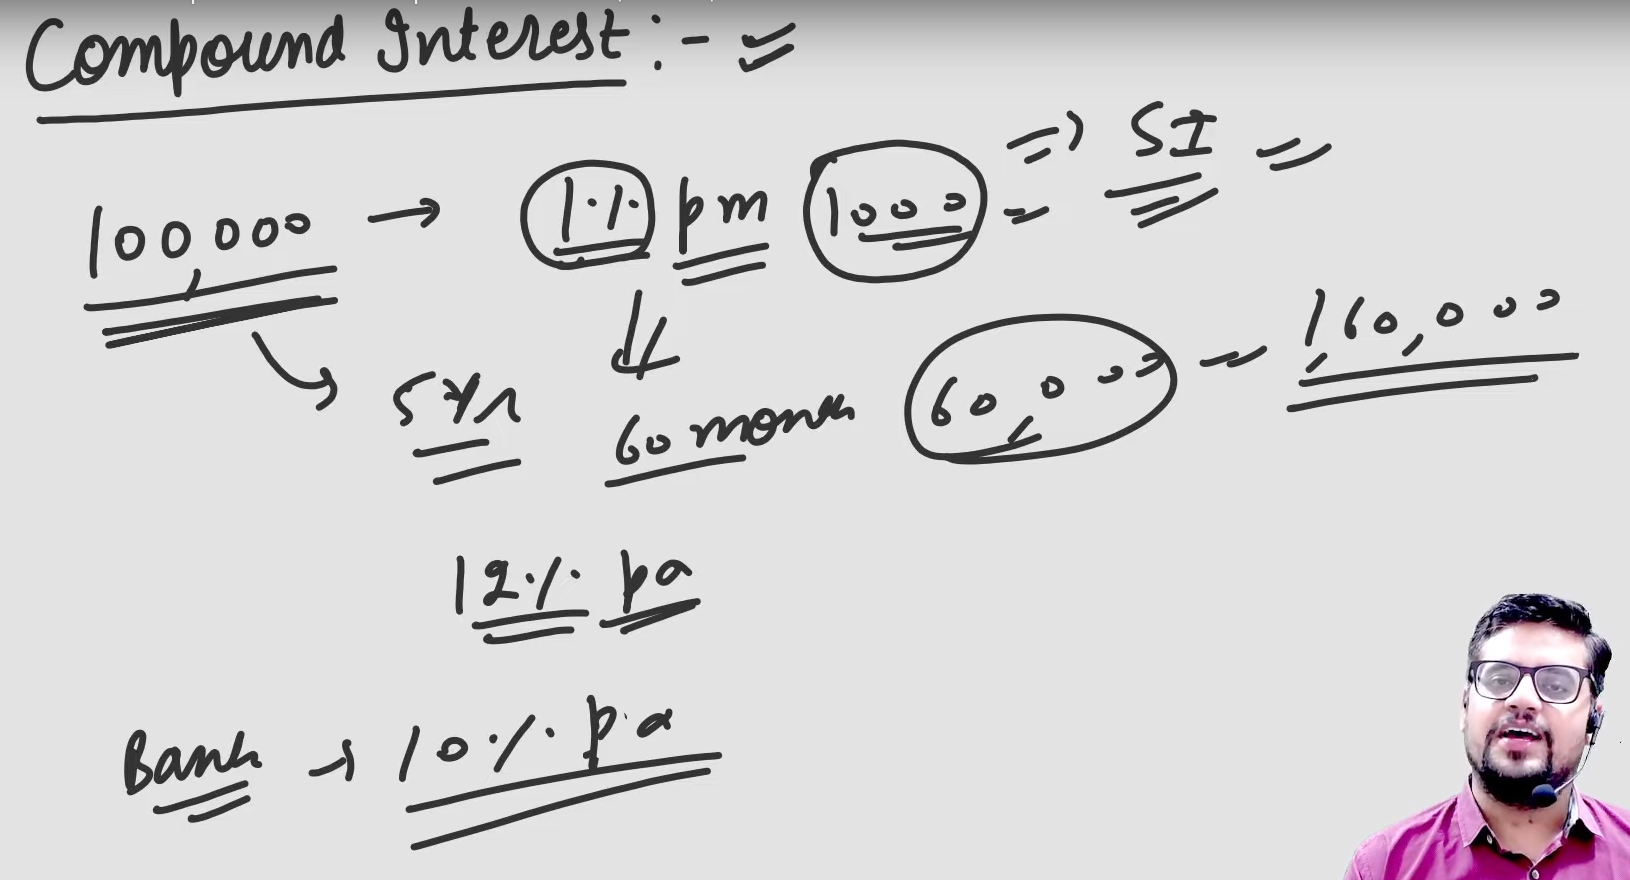 Compound Interest :-
100,000 → 1% pm 1000 => SI
5 yr 60 month 60,000 = 160,000
12% pa
Bank → 10% p.a